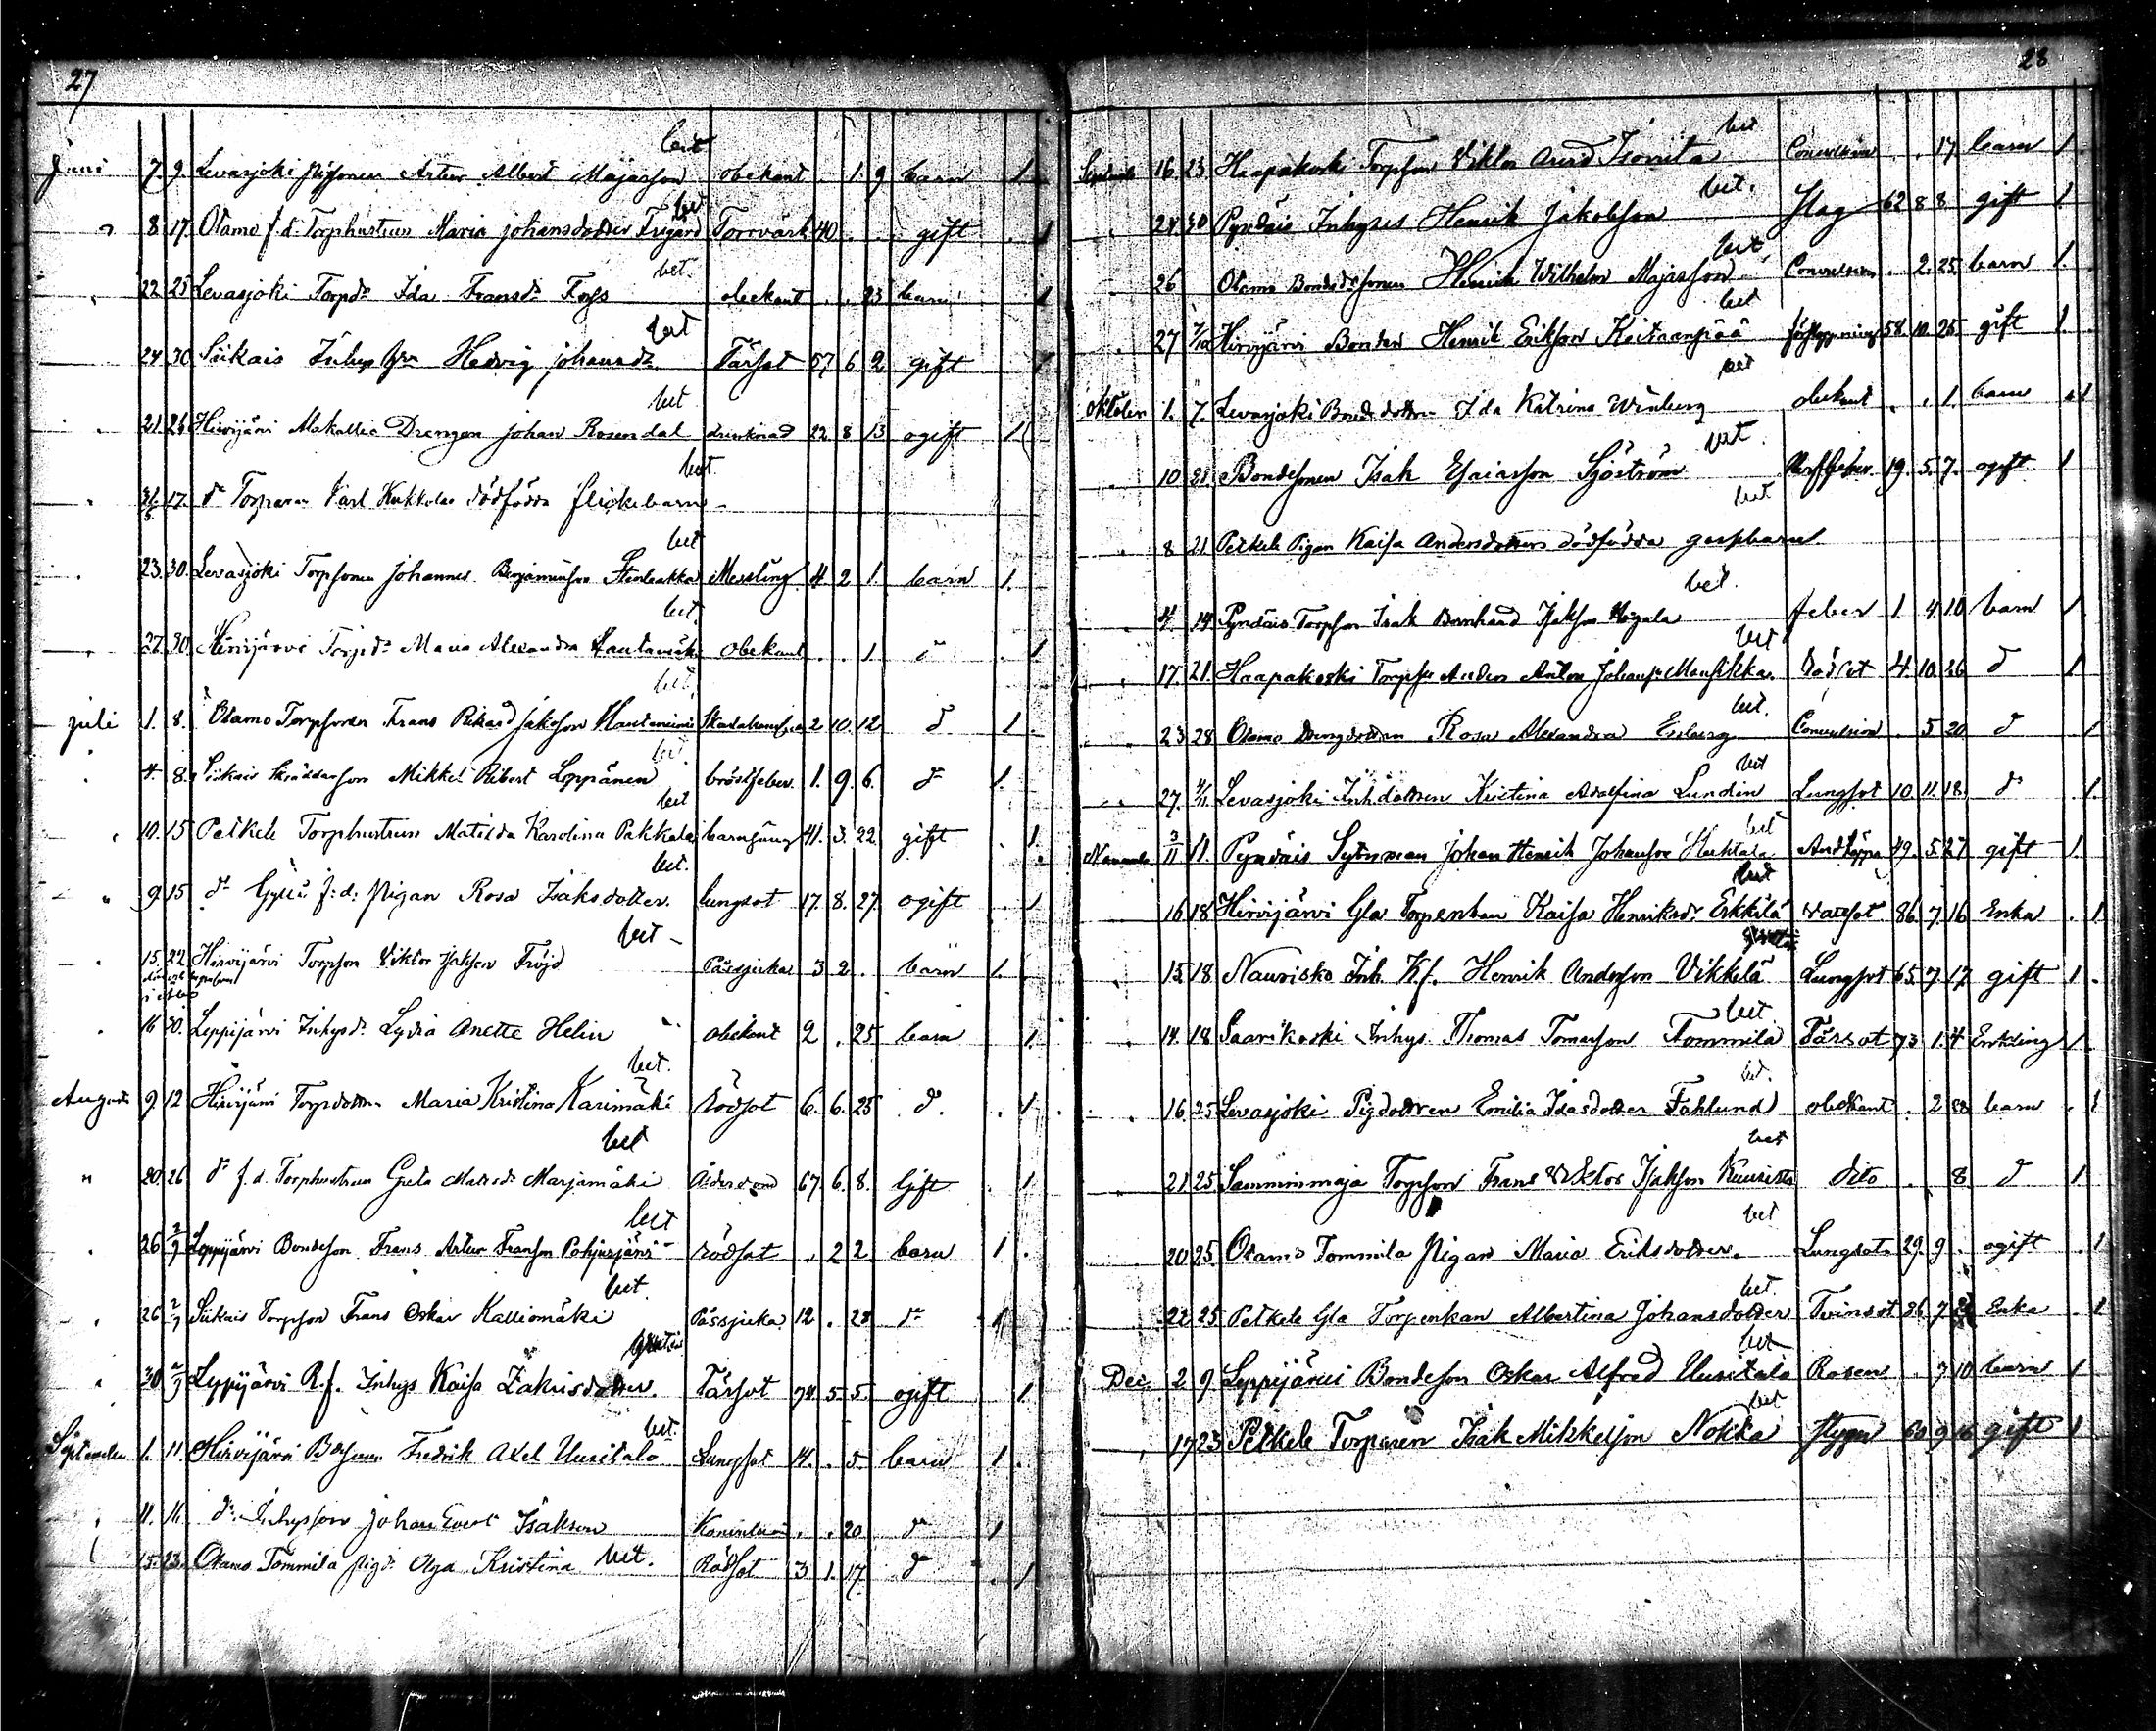 27
bet
Juni 7. 9. Levasjoki Pigsonen Artur Albert Majasson obekant 1. 9 barn 1
bet
8 17. Otamo f.d. Torphustrun Maria Johansdotter Frigård Torrvärk 40 gift 1
bet.
22 25 Levasjoki Torpdr Ida Fransdr Fors obekant 25 barn 1
bet
24 30 Siikais Hedvig Johansdr Tärsot 57 6 2 gift 1
bet
21 26 Hirvijärvi Makallio Drengen Johan Rosendal drunknad 22 8 13 ogift 1
bet.
17. dr Torparen Karl Kukkolas dödfödda flickebarn
bet
23 30. Levasjoki Torpsonen Johannes Benjaminson Messling 4 2 1. barn 1.
bet.
27 30. Hirvijärvi Torpdr Maria Alexandra Hautamäki obekant 1. dr 1
bet.
juli 1. 8. Otamo Torpsonen Frans Rikard Jaksson 2 10 12 dr 1.
bet.
4. 8. Siikais Skräddarson Mikkel Robert Leppänen bröstfeber 1. 9. 6. dr 1.
bet
10. 15 Petkele Torphustrun Matilda Karolina Pakkala barnsäng 41. 3. 22. gift 1.
bet.
9 15 dr f:d: Pigan Rosa Isaksdotter lungsot 17. 8. 27. ogift 1
bet
15. 22. Hirvijärvi Torpson Viktor Jakson Fröjd Passjuka 3 2. barn 1.
16 30. Leppijärvi Inhysdr Lydia Anette Helin obekant 2 25 barn 1.
bet.
Augusti 9 12 Hirvijärvi Torpdottren Maria Kristina Karimäki Rödsot 6. 6. 25 dr. 1
bet
20. 26 dr f.d. Torphustrun Greta Matsdr Marjamäki Ålderdom 67. 6. 8. Gift 1
bet
26 2/9 Leppijärvi Bondeson Frans Artur Franson Pohjasjärvi rödsot 2 2. barn 1.
bet.
26 2/9 Siikais Torpson Frans Oskar Kalliomäki Passjuka 12. 28 dr 1
gratis
30 2/9 Leppijärvi R.f. Inhys Kaisa Zakrisdotter. Tärsot 74. 5. 5. ogift 1
bet.
September 1. 11. Hirvijärvi Fredrik Axel Uusitalo Lungsot 14. 5. barn 1.
11. 16. dr Inhysson Johan Evert Isakson 20. dr 1
15. 23. Otamo Tommila Pigdr Olga Kristina bet. Rödsot 3 1. 17. dr 1
28
bet
September 16. 23. Haapakoski Torpson Viktor Arvid Convulsion 17 barn 1.
bet.
24. 30 Pyndäis Inhyses Henrik Jakobson Slag 62 8 8. gift 1
bet
26 Otamo Henrik Wilhelm Majasson Convulsion 2. 25. barn 1.
bet
27 7/10 Hirvijärvi Bonden Henrik Erikson Koitaanpää förstoppning 58. 10. 25 gift 1.
bet
Oktober 1. 7. Levasjoki Bondedottren Ida Katrina Winberg obekant 1. barn 1
bet.
10 21. Bondesonen Isak Esaiasson Sjöström 19. 5. 7. ogift 1
bet
8 21 Petkele Pigan Kaisa Andersdotters dödfödda gossbarn
bet.
4. 14 Pyndäis Torpson Isak Bernhard feber 1. 4. 10 barn 1
bet
17. 21. Haapakoski Torpson Anders Anton Johanson Mansikka. Rödsot 4. 10. 26 dr 1
bet.
23 28 Otamo Drengdottren Rosa Alexandra Convulsion 5 20 dr 1
bet
27. 4/11. Levasjoki Inhdottren Kristina Adolfina Lundin Lungsot 10. 11. 18. dr 1.
bet
November 3/11 11. Pyndäis Sytnman Johan Henrik Johanson Huhtala Andtäppa 49. 5. 27 gift 1.
bet
16 18 Hirvijärvi Gla Torpenkan Kaisa Henriksdr Erkkilä 86. 7. 16 Enka 1
gratis
15 18 Naurisko Inh. K.f. Henrik Anderson Vikkelä Lungsot 65. 7. 17 gift 1.
bet.
14. 18 Saarikoski Inhys. Thomas Tomasson Tommila Tärsot 73 1. 4 Enkling 1.
bet.
16. 25 Levasjoki Pigdottren Emilia Isasdotter Fahlund obekant 2 28 barn 1
bet
21. 25. Samminmaja Torpson Frans Viktor Isakson Kuusisto dito 8. dr 1
bet
20 25 Otamo Tommila Pigan Maria Eriksdotter. Lungsot 29. 9. ogift 1
bet.
22. 25 Petkele Gla Torpenkan Albertina Johansdotter Tvinsot 36 7 Enka 1
bet
Dec. 2. 9 Leppijärvi Bondeson Oskar Alfred Uusitalo Rosen 7 10 barn 1
bet
17 23 Petkele Torparen Isak Mikkelson Nokka Styng 60 9 16 gift 1